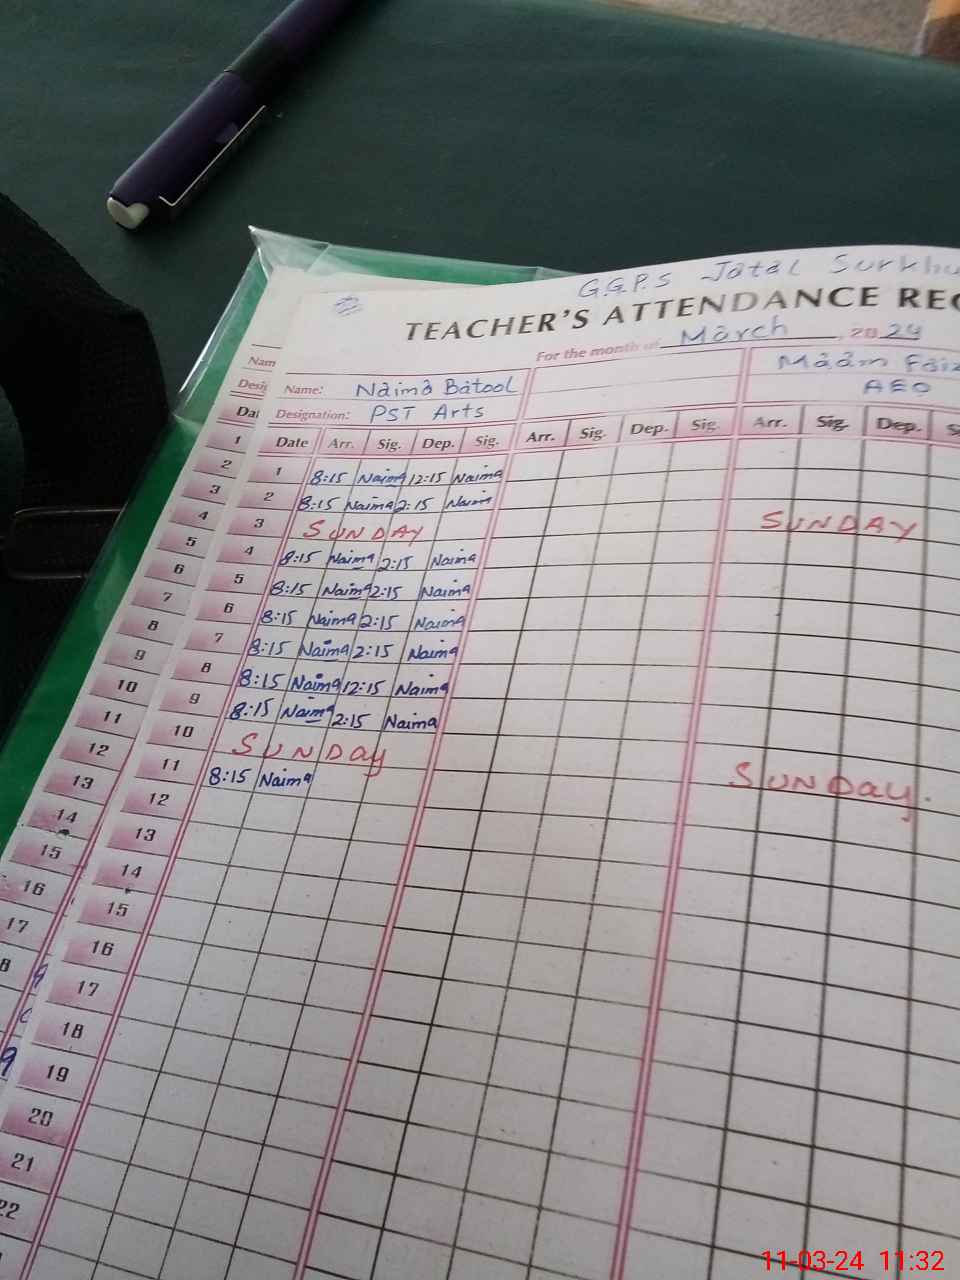 G.G.P.S Jatal
TEACHER'S ATTENDANCE
For the month of March, 2024
Name: Naima Batool Maam
Designation: PST Arts AEO
Date Arr. Sig. Dep. Sig. Arr. Sig. Dep. Sig. Arr. Sig. Dep.
1 8:15 Naima 12:15 Naima
2 8:15 Naima 2:15 Naima
3 SUNDAY SUNDAY
4 8:15 Naima 2:15 Naima
5 8:15 Naima 2:15 Naima
6 8:15 Naima 2:15 Naima
7 8:15 Naima 2:15 Naima
8 8:15 Naima 12:15 Naima
9 8:15 Naima 2:15 Naima
10 SUNDay SUNDay.
11 8:15 Naima
12
13
14
15
16
17
18
19
20
21
22
1
2
3
4
5
6
7
8
9
10
11
12
13
14
15
16
17
11-03-24 11:32